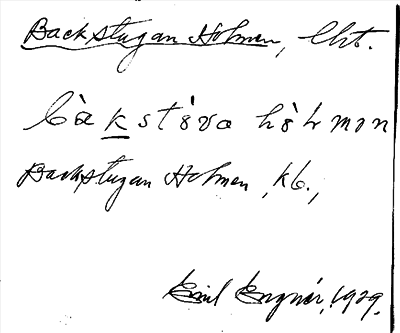 Backstugan Holmen, lht.
bàkstòva hòlmɔn
Backstugan Holmen, kb.,
Emil Engnér, 1929.